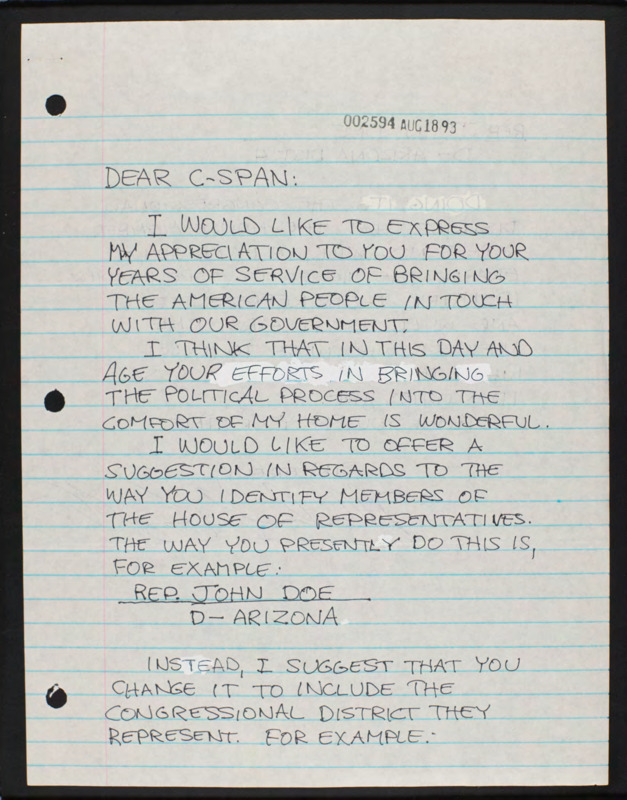 002594 AUG18 93
DEAR C-SPAN:
I WOULD LIKE TO EXPRESS
MY APPRECIATION TO YOU FOR YOUR
YEARS OF SERVICE OF BRINGING
THE AMERICAN PEOPLE IN TOUCH
WITH OUR GOVERNMENT.
I THINK THAT IN THIS DAY AND
AGE YOUR EFFORTS IN BRINGING
THE POLITICAL PROCESS INTO THE
COMFORT OF MY HOME IS WONDERFUL.
I WOULD LIKE TO OFFER A
SUGGESTION IN REGARDS TO THE
WAY YOU IDENTIFY MEMBERS OF
THE HOUSE OF REPRESENTATIVES.
THE WAY YOU PRESENTLY DO THIS IS,
FOR EXAMPLE:
REP. JOHN DOE
D- ARIZONA
INSTEAD, I SUGGEST THAT YOU
CHANGE IT TO INCLUDE THE
CONGRESSIONAL DISTRICT THEY
REPRESENT. FOR EXAMPLE: